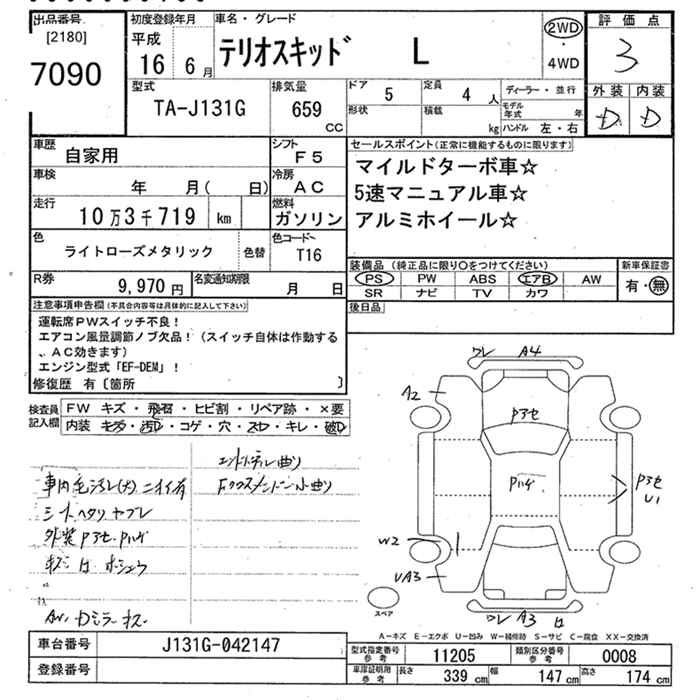 出品番号
[2180]
7090
初度登録年月
平成
16 6月
車名・グレード
テリオスキッド L
2WD
・
4WD
評価点
3
外装 内装
D D
型式
TA-J131G
排気量
659
CC
ドア 5
定員 4 人
形状
積載 kg
ディーラー・並行
モデル年式 年
ハンドル 左・右
車歴 自家用
シフト F5
車検 年 月( 日)
冷房 AC
走行 10万3千719 km
燃料 ガソリン
色 ライトローズメタリック 色替
色コード T16
R券 9,970円
名変通知期限 月 日
セールスポイント(正常に機能するものに限ります)
マイルドターボ車☆
5速マニュアル車☆
アルミホイール☆
装備品(純正品に限り○をつけてください)
PS PW ABS エアB AW
SR ナビ TV カワ
新車保証書
有・無
後日品
注意事項申告欄(不具合内容等は具体的に記入して下さい)
運転席PWスイッチ不良!
エアコン風量調節ノブ欠品!(スイッチ自体は作動する
、AC効きます)
エンジン型式「EF-DEM」!
修復歴 有〔箇所 〕
検査員記入欄
FW キズ・飛石・ヒビ割・リペア跡・×要
内装 キズ・汚れ・コゲ・穴・スレ・キレ・破れ
車内毛汚レ(大)ニオイ有
シートヘタリヤブレ
外装Pヨセ・Pハゲ
ワレ A4
A2
Pヨセ
Pハゲ
Pヨセ
U1
W2
UA3
ワレ A3
スペア
A-キズ E-エクボ U-凹み W-補修跡 S-サビ C-腐食 XX-交換済
車台番号 J131G-042147
登録番号
型式指定番号 参考 11205
類別区分番号 参考 0008
車庫証明用 参考 長さ 339 cm 幅 147 cm 高さ 174 cm